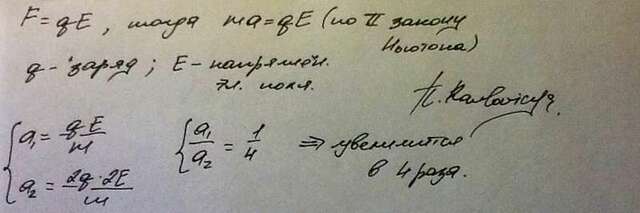 F = qE, тогда ma = qE (по II закону Ньютона)
q - заряд; E - напряжён. эл. поля.
{ a₁ = qE/m
a₂ = 2q·2E/m
{ a₁/a₂ = 1/4 => увеличится в 4 раза.